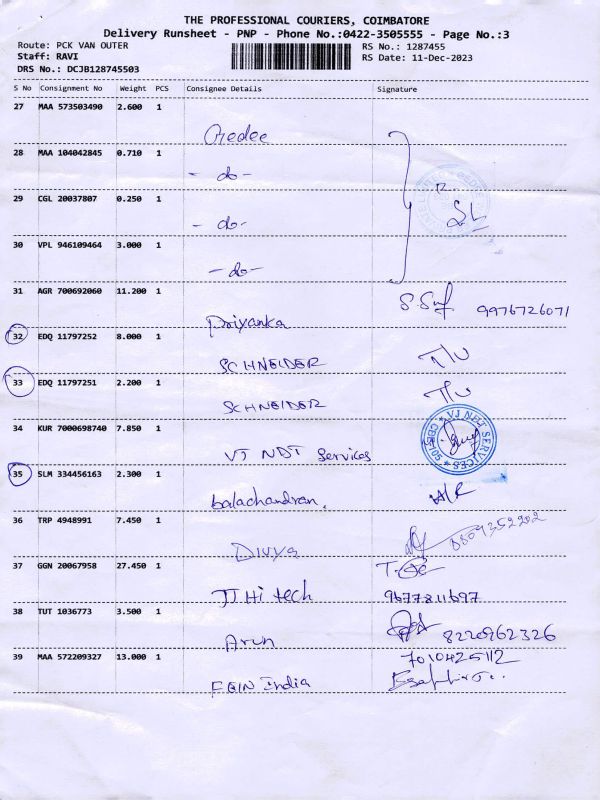 THE PROFESSIONAL COURIERS, COIMBATORE
Delivery Runsheet - PNP - Phone No.:0422-3505555 - Page No.:3
Route: PCK VAN OUTER RS No.: 1287455
Staff: RAVI RS Date: 11-Dec-2023
DRS No.: DCJB128745503
S No Consignment No Weight PCS Consignee Details Signature
27 MAA 573503490 2.600 1
28 MAA 104042845 0.710 1
- do -
29 CGL 20037807 0.250 1
- do -
30 VPL 946109464 3.000 1
- do -
31 AGR 700692060 11.200 1
Priyanka 9976726071
32 EDQ 11797252 8.000 1
SCHNEIDER
33 EDQ 11797251 2.200 1
SCHNEIDER
34 KUR 7000698740 7.850 1
VJ NDT Services VJ NDT SERVICES
35 SLM 334456163 2.300 1
balachandran.
36 TRP 4948991 7.450 1
Divya
37 GGN 20067958 27.450 1
JJ Hi tech 9677811697
38 TUT 1036773 3.500 1
Arun 8220962326
39 MAA 572209327 13.000 1 7010425112
India